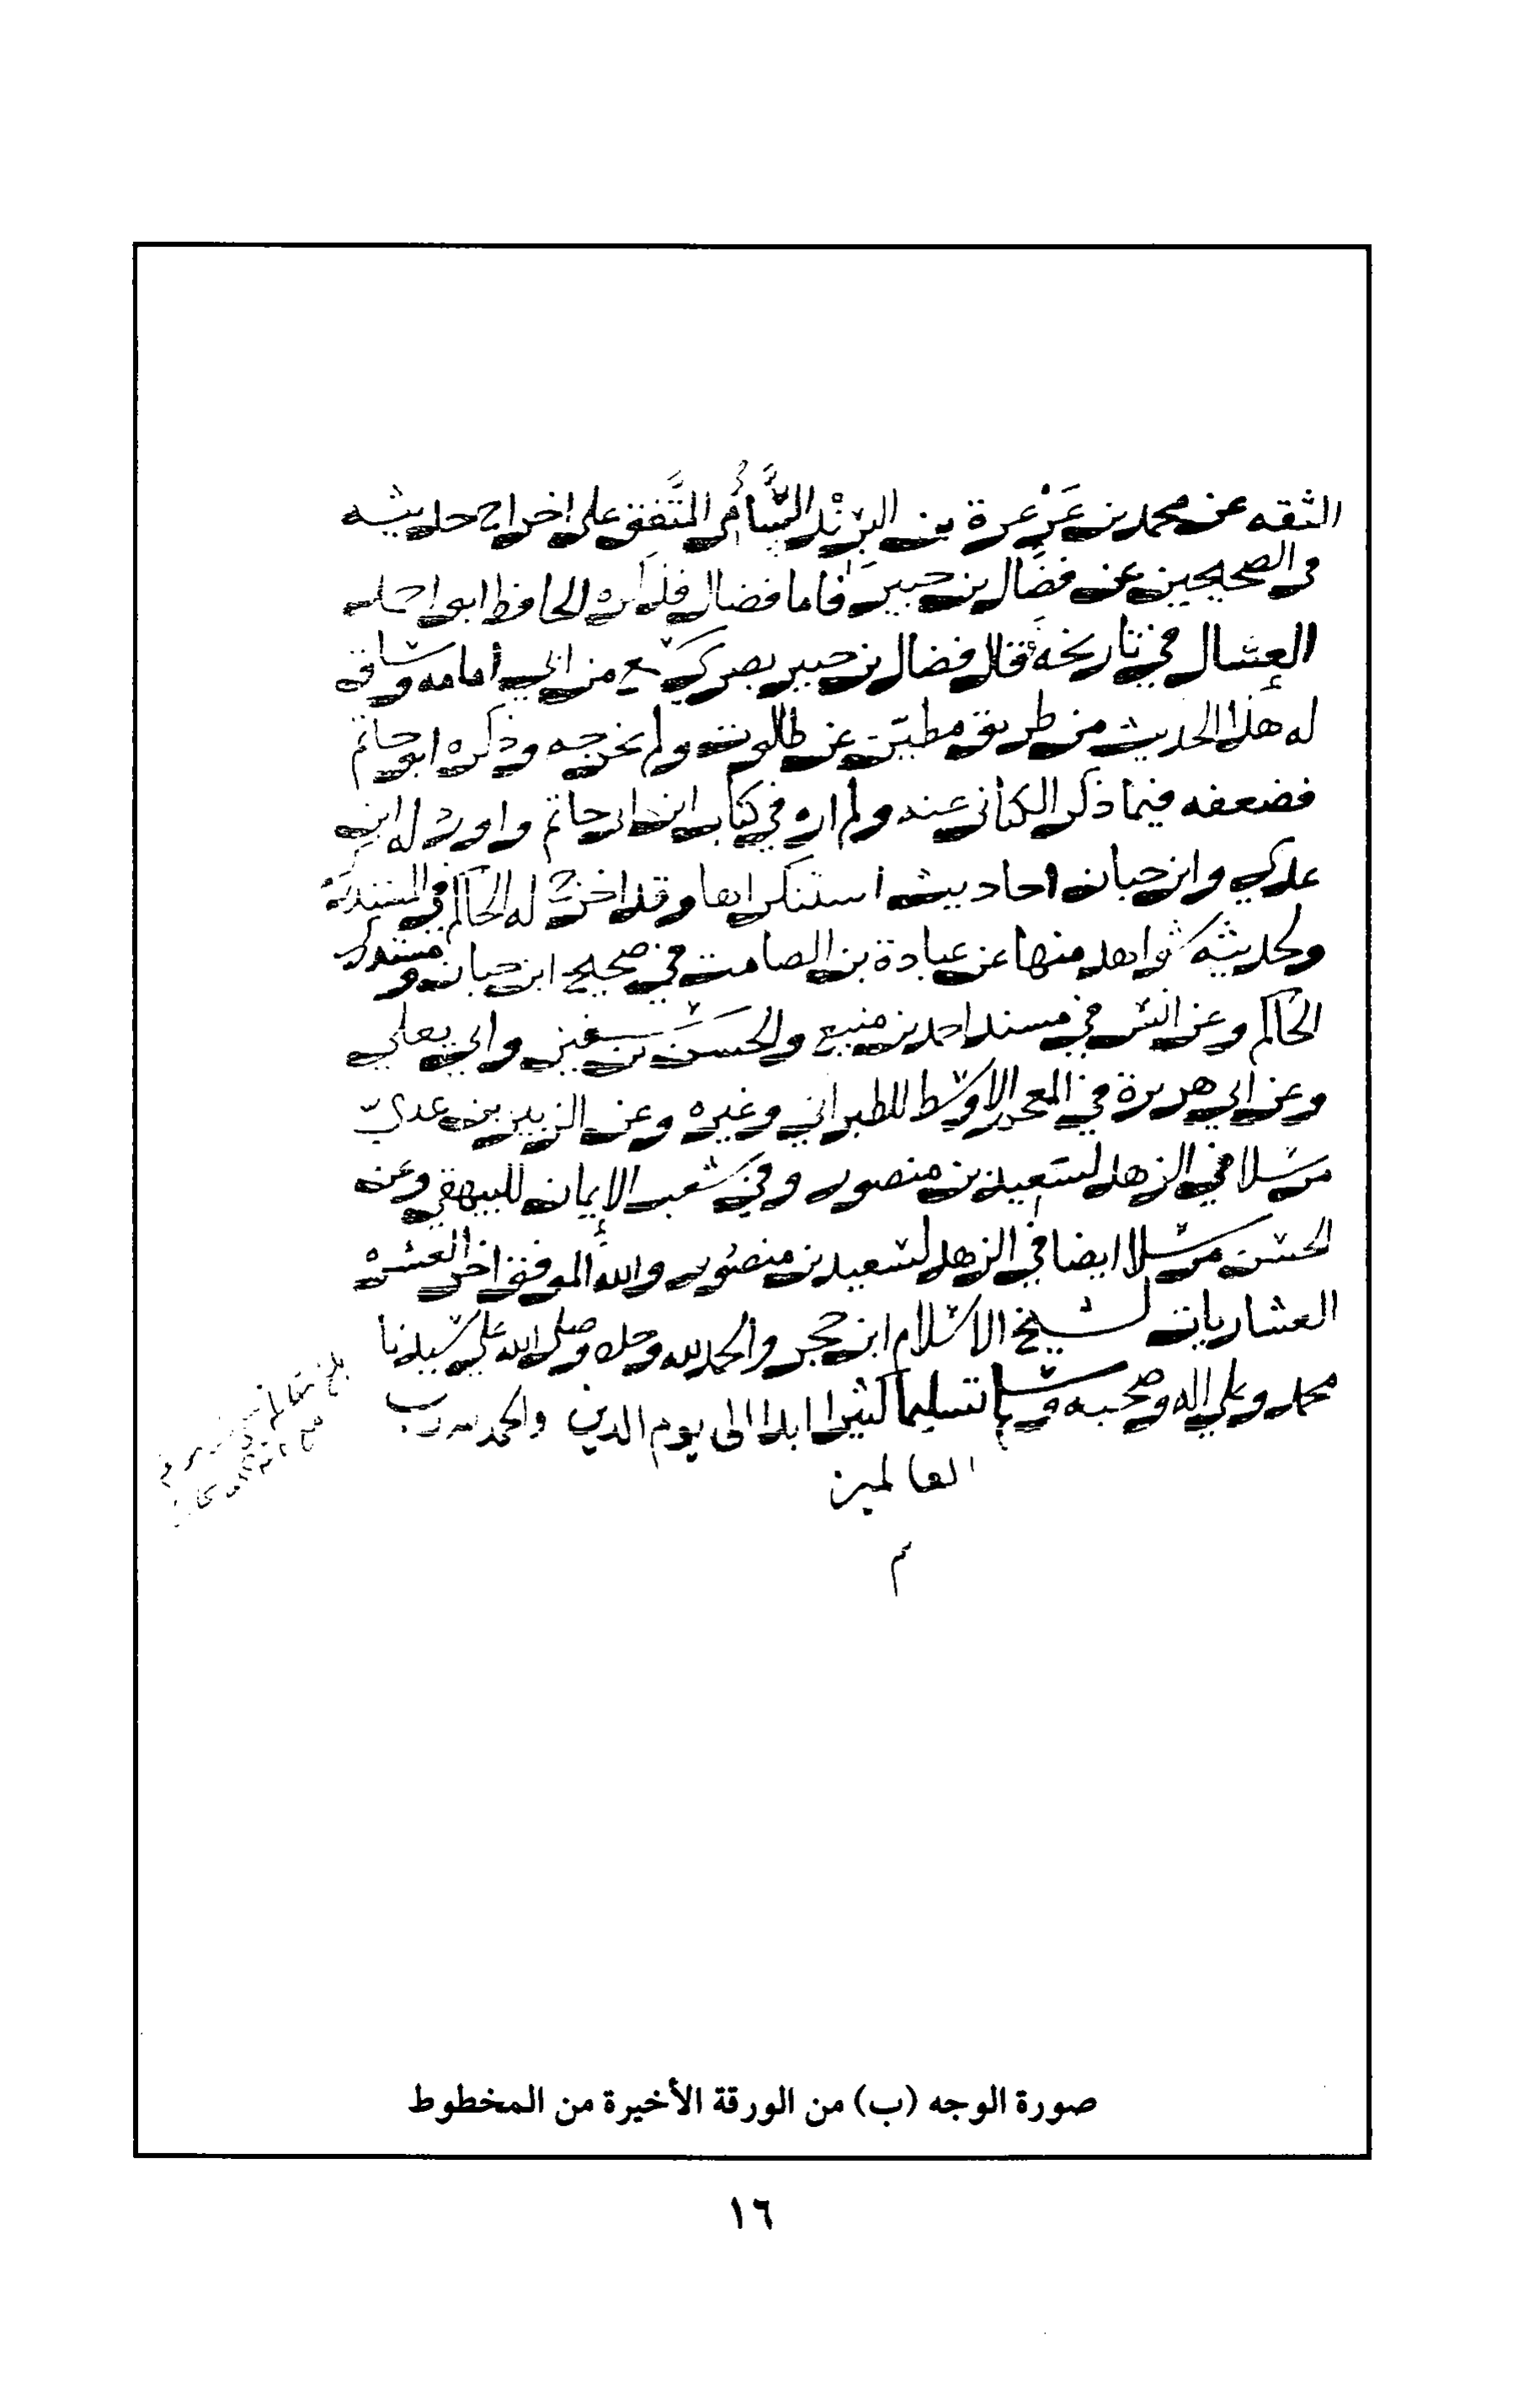 الثقه عن محمد بن عَرْعرة بن البِرِنْد السَّامي المتَّفق على اخراج حديثه
في الصحيحين عن فضَّال بن جبير فاما فضال فذكره الحافظ ابو احمد
العسال في تاريخه فقال فضال بن جبير بصري سمع من ابي أمامه وساق
له هذا الحديث من طريق مطيّن عن طالوت ولم يخرجه وذكره ابو حاتم
فضعفه فيما ذكر الكتاني عنه ولم اره في كتاب ابن ابي حاتم واورد له ابن
عدي وابن حبان احاديث استنكراها وقد اخرج له الحاكم في المستدرك
ولحديثه شواهد منها عن عبادة بن الصامت في صحيح ابن حبان ومستدرك
الحاكم وعن انس في مسند احمد بن منيع والحسَن بن سفين وابي يعلى
وعن ابي هريرة في المعجم الاوسط للطبراني وغيره وعن الزبير بن عديّ
مرسلا في الزهد لسعيد بن منصور وفي شعب الايمان للبيهقي وعن
الحسن مرسلا ايضا في الزهد لسعيد بن منصور والله الموفق اخر العشره
العشاريات لشيخ الاسلام ابن حجر والحمد لله وحده وصلى الله على سيدنا
محمد وعلى اله وصحبه وسلم تسليما كثيرا ابدا الى يوم الدين والحمد لله رب
العالمين
م
صورة الوجه (ب) من الورقة الأخيرة من المخطوط
١٦